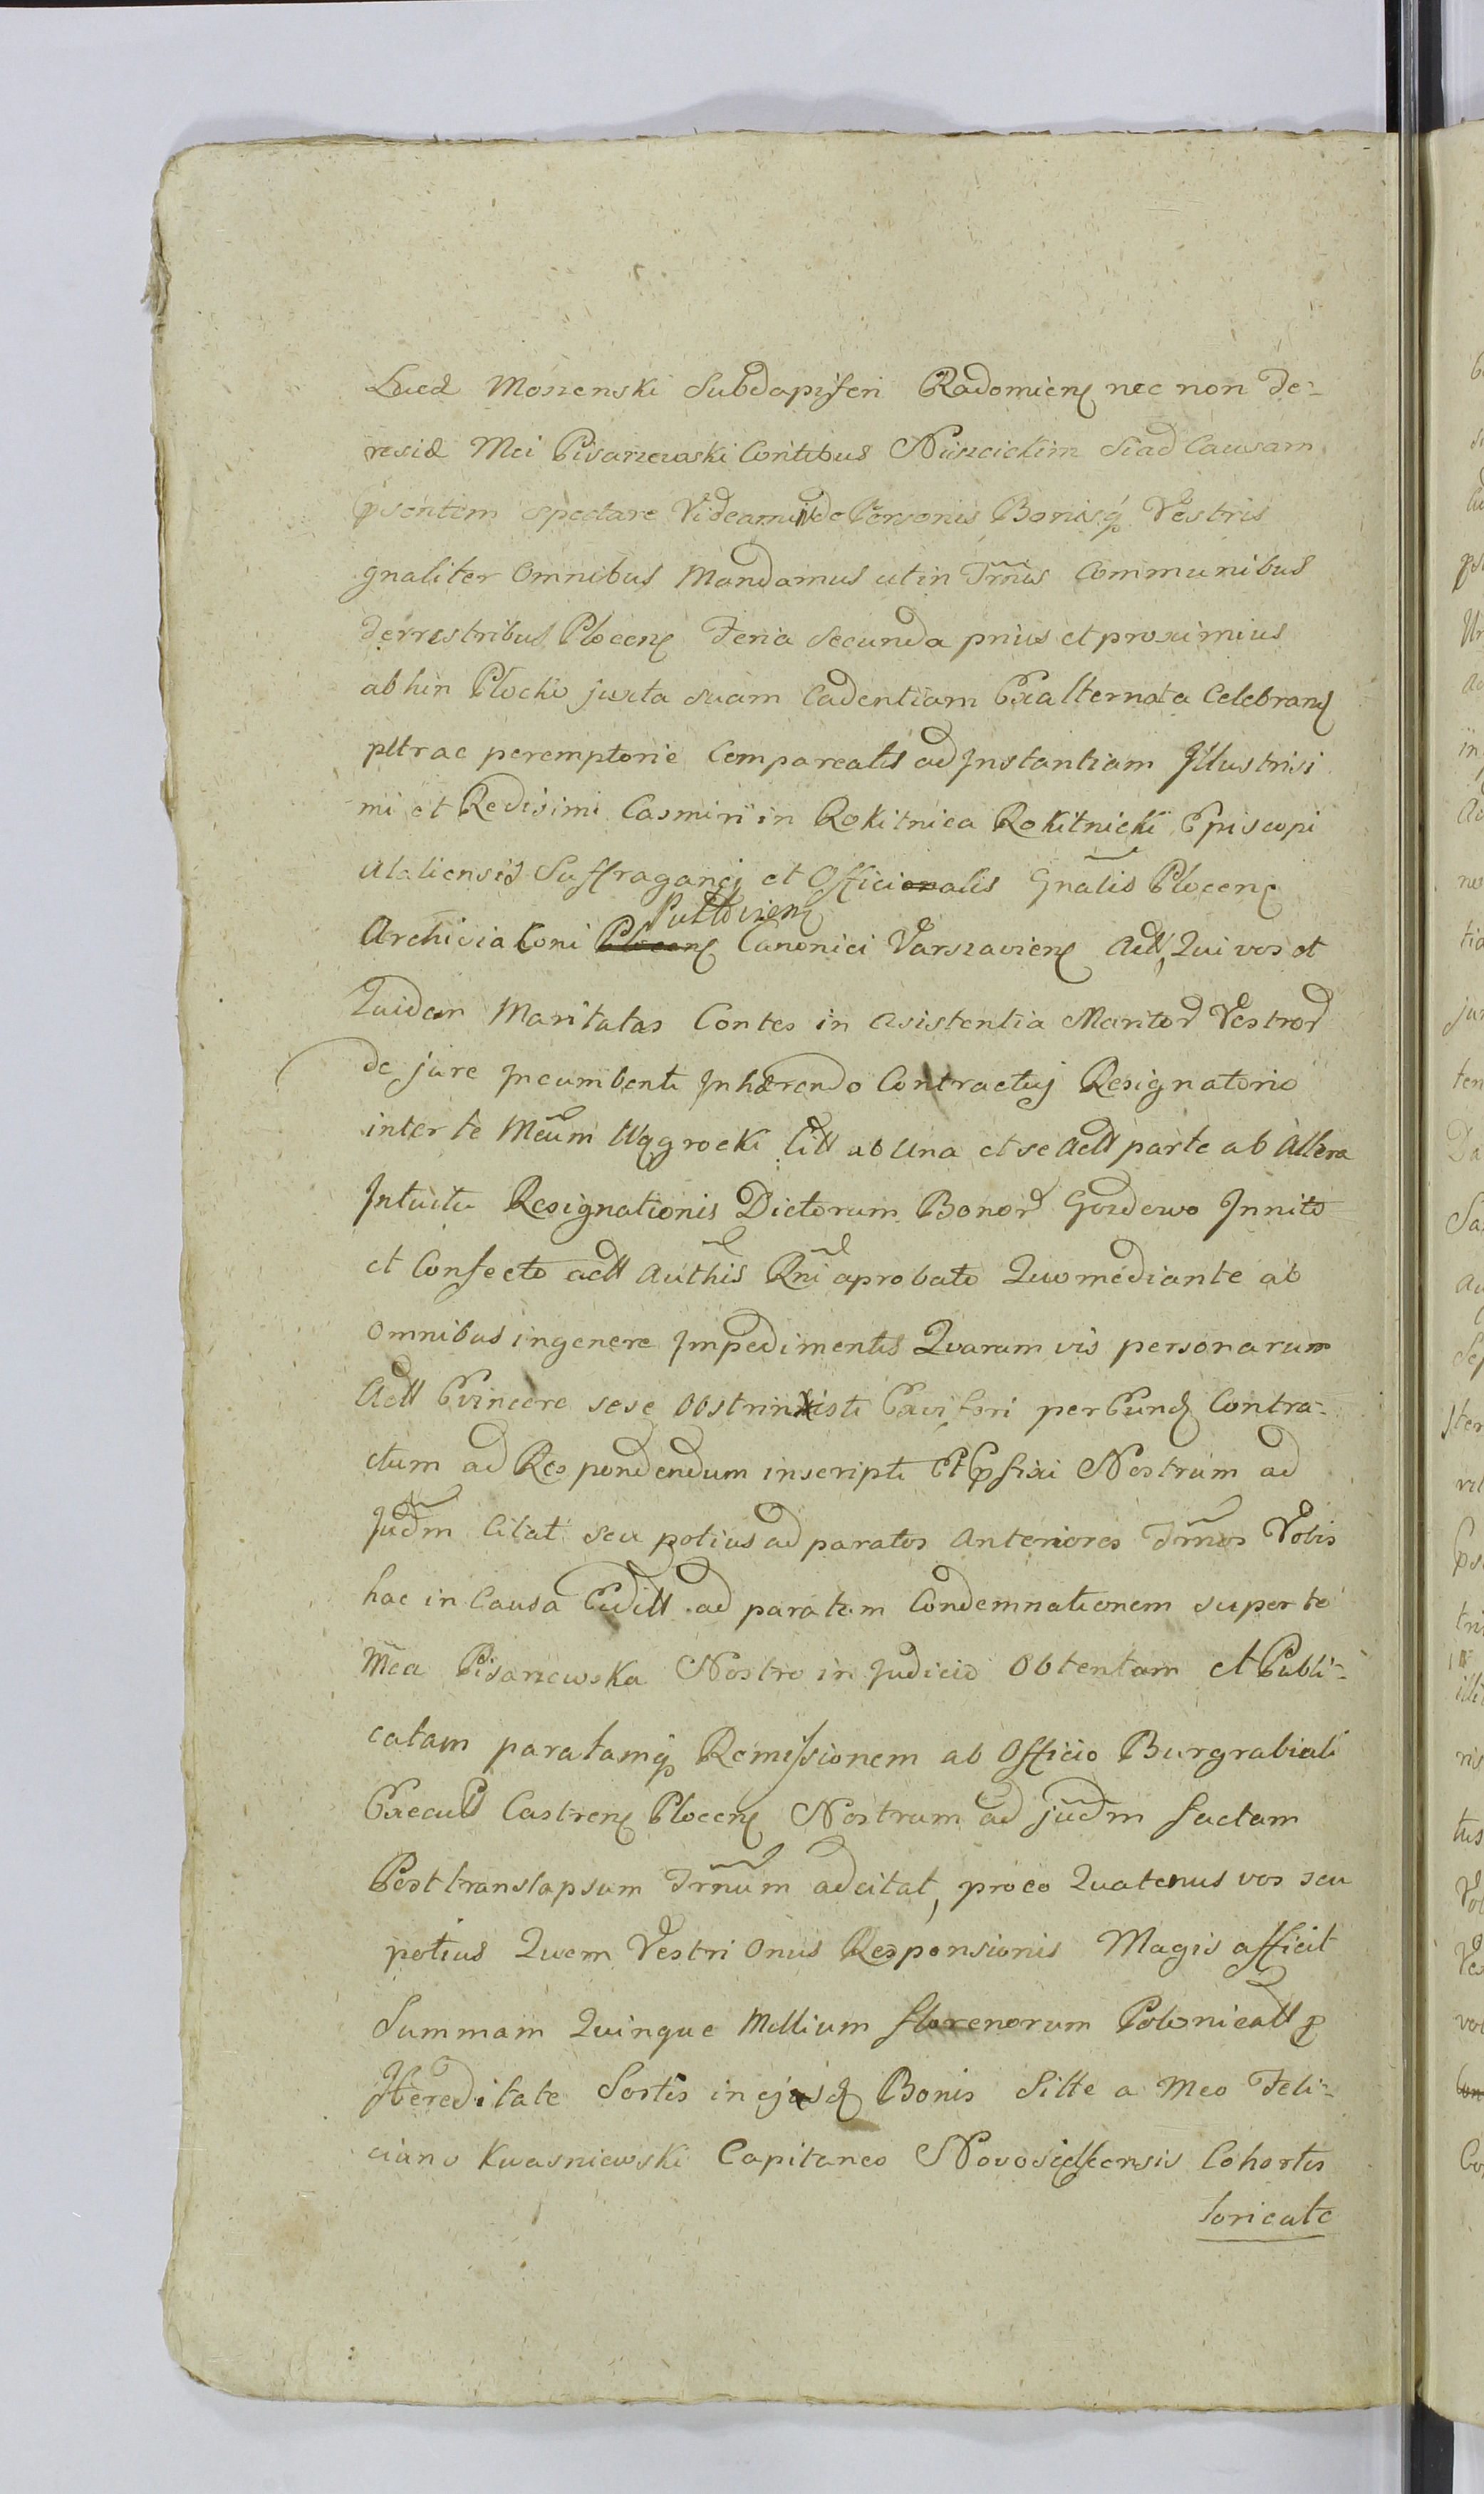 Lucd Moszenski Subdapiferi Radomien nec non De-
resid Mei Pisarzewski Contibus Niszcickim Si ad Causam
psentem spectare Videamini de Personis Bonisq Vestris
gnaliter Omnibus Mandamus ut in Trnis Communibus
Terrestribus Plocen Feria Secunda prius et proximius
abhin Plocko juxta suam Cadentiam Exalternata Celebrand
pltrae peremptorie Compareatis ad Jnstantiam Jllustrisi
mi et Redisimi Casmiri in Rokitnica Rokitnicki Episcopi
Ulaliensis Suffraganej et Officialis Gnalis Plocen
Pultovien
Archidiaconi Plocen Canonici Varszavien Act, Qui vos et
Quidem Maritatas Contes in Asistentia Maritor Vestror
de jure Jncumbenti Jnhærendo Contractuj Resignatorio
inter te Mcum Wągrocki Citt ab Una et se Actt parte ab Altera
Jntuitu Resignationis Dictorum Bonor Gozdowo Jnnito
et Confecto actt Authis Rni aprobato Quo mediante ab
Omnibus ingenere Jmpedimentis Quarumvis personarum
Actt Evincere sese Obstrinxisti Evi fori per Eund Contra-
ctum ad Respondendum inscripti Et pfixi Nostrum ad
Judm Citat seu potius ad paratos Anteriores Trnos Vobis
hac in Causa Editt ad paratam Condemnationem super te
Mca Pisarzewska Nostro in Judicio Obtentam et Publi-
catam paratamq Remissionem ab Officio Burgrabiali
Execut Castren Plocen Nostrum ad judm factam
Post translapsum Trnum adcitat, pro eo Quatenus vos seu
potius Quem Vestri Onus Responsionis Magis afficit
Summam Quinque Millium florenorum Polonicall p
Hereditate Sortis in ejusd Bonis Sitte a Mco Feli-
ciano Kwasniewski Capitaneo Novosielscensis Cohortis
loricate